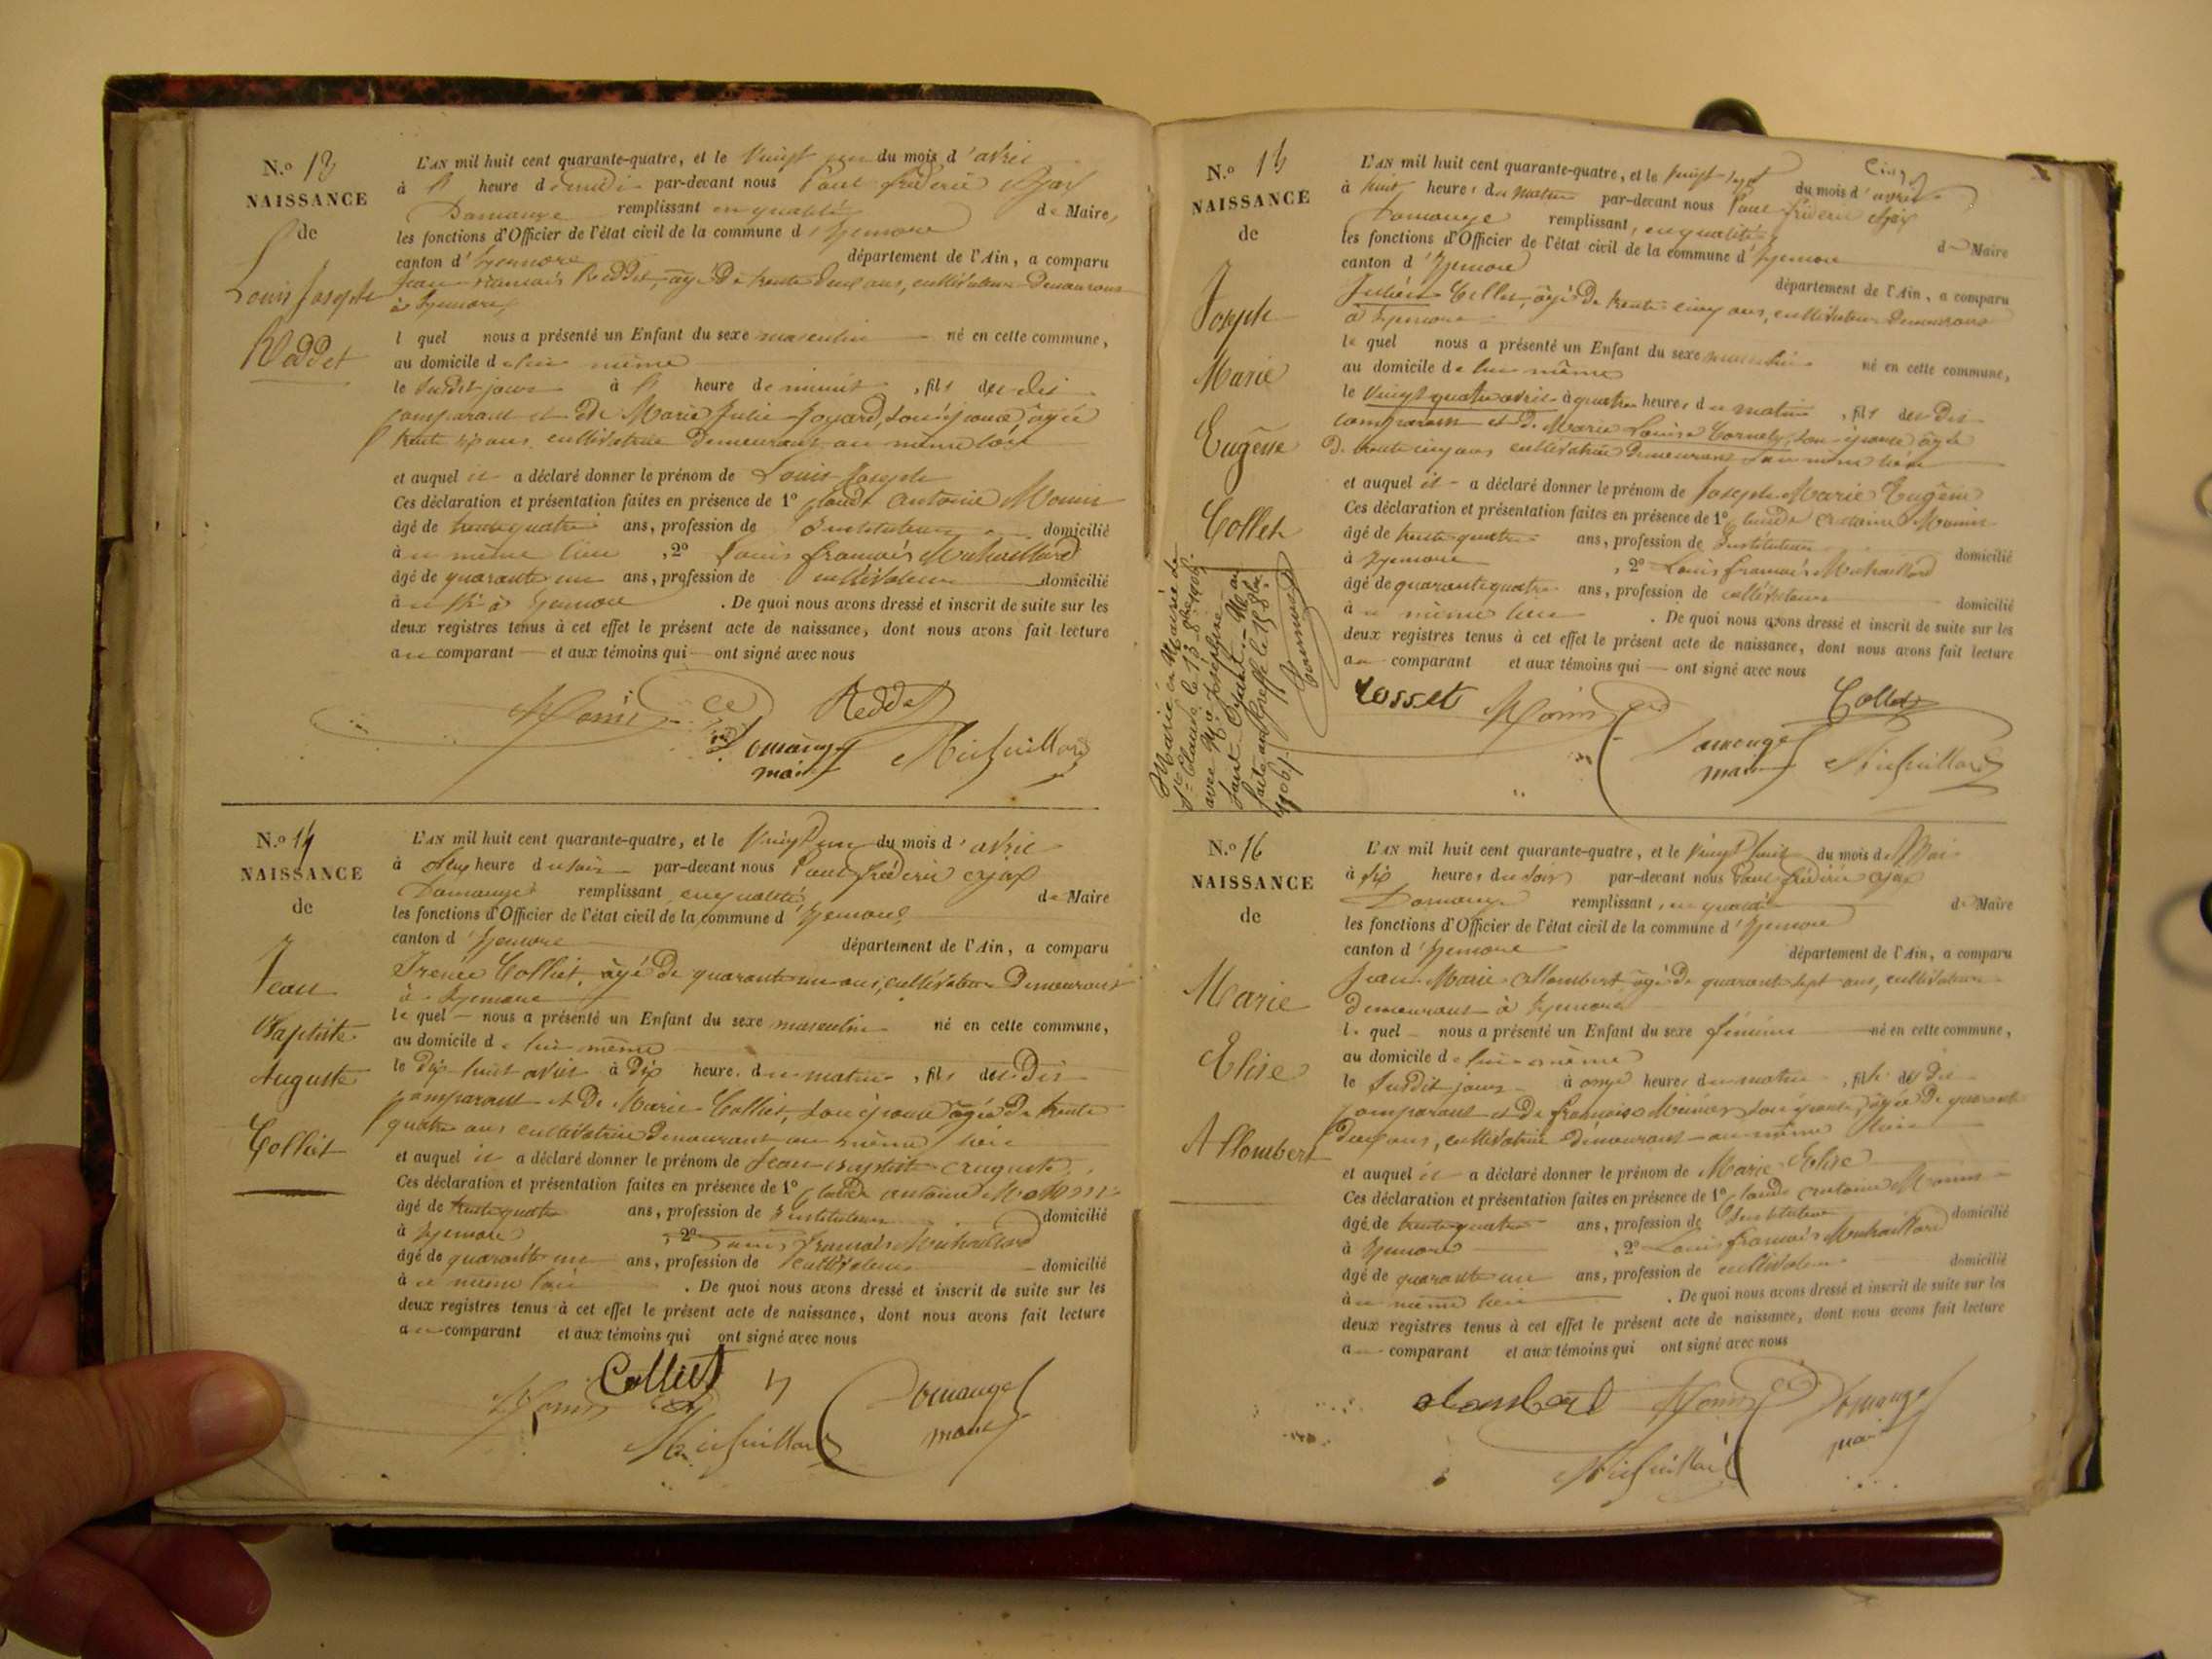 N.º 13
NAISSANCE
de
Louis Joseph
Reddet
L'AN mil huit cent quarante-quatre, et le vingt un du mois d'avril
à heure de midi par-devant nous Paul frédéric Ajax
Domange remplissant en qualité de Maire,
les fonctions d'Officier de l'état civil de la commune d'Izernore
canton d'Izernore département de l'Ain, a comparu
Jean françois Reddet, agé de trente deux ans, cultivateur Demeurant
à Izernore,
l quel nous a présenté un Enfant du sexe masculin né en cette commune,
au domicile de lui même
le susdit jour à heure de minuit, fils des dit
comparant et de Marie Julie Joyard, son épouse, âgée
trente six ans, cultivatrice Demeurant au même lieu
et auquel il a déclaré donner le prénom de Louis Joseph
Ces déclaration et présentation faites en présence de 1º Claude Antoine Monin
âgé de trente quatre ans, profession de Instituteur domicilié
à ce même lieu, 2º Louis françois Michaillard
âgé de quarante un ans, profession de cultivateur domicilié
à Izernore. De quoi nous avons dressé et inscrit de suite sur les
deux registres tenus à cet effet le présent acte de naissance, dont nous avons fait lecture
au comparant et aux témoins qui ont signé avec nous
Monin Reddet
Domange
maire Michaillard
N.º 14
NAISSANCE
de
Jean
Baptiste
Auguste
Colliet
L'AN mil huit cent quarante-quatre, et le vingt un du mois d'avril
à heure du soir par-devant nous Paul frédéric Ajax
Domange remplissant en qualité de Maire
les fonctions d'Officier de l'état civil de la commune d'Izernore
canton d'Izernore département de l'Ain, a comparu
Irénée Colliet, âgé de quarante un ans, cultivateur Demeurant
à Izernore
le quel nous a présenté un Enfant du sexe masculin né en cette commune,
au domicile de lui même
le dix huit avril à dix heure, du matin, fils des Dit
comparant et De Marie Colliet, son épouse âgée De trente
quatre ans cultivatrice demeurant au même lieu
et auquel il a déclaré donner le prénom de Jean Baptiste Auguste
Ces déclaration et présentation faites en présence de 1º Claude antoine Monin
âgé de trente quatre ans, profession de Instituteur domicilié
à Izernore, 2º Louis françois Michaillard
âgé de quarante un ans, profession de cultivateur domicilié
à ce même lieu. De quoi nous avons dressé et inscrit de suite sur les
deux registres tenus à cet effet le présent acte de naissance, dont nous avons fait lecture
au comparant et aux témoins qui ont signé avec nous
Monin Colliet Domange
Michaillard maire
N.º 15
NAISSANCE
de
Joseph
Marie
Eugène
Collet
Marié en Mairie de
St Claude le 13 8bre 1906
avec Mlle Joséphine
faite au Greffe le 15 8bre
1906
L'AN mil huit cent quarante-quatre, et le vingt cinq du mois d'avril
à huit heures du matin par-devant nous Paul frédéric Ajax
Domange remplissant, en qualité de Maire
les fonctions d'Officier de l'état civil de la commune d'Izernore
canton d'Izernore département de l'Ain, a comparu
Julien Collet, âgé De trente cinq ans, cultivateur Demeurant
à Izernore
le quel nous a présenté un Enfant du sexe masculin né en cette commune,
au domicile de lui même
le vingt quatre avril à quatre heures du matin, fils des Dit
comparant et De Marie Louise Cornely, son épouse âgée
De trente cinq ans cultivatrice Demeurant au même lieu
et auquel il a déclaré donner le prénom de Joseph Marie Eugène
Ces déclaration et présentation faites en présence de 1º Claude Antoine Monin
âgé de trente quatre ans, profession de Instituteur domicilié
à Izernore, 2º Louis françois Michaillard
âgé de quarante quatre ans, profession de cultivateur domicilié
à ce même lieu. De quoi nous avons dressé et inscrit de suite sur les
deux registres tenus à cet effet le présent acte de naissance, dont nous avons fait lecture
au comparant et aux témoins qui ont signé avec nous
Monin Collet
Domange
maire Michaillard
N.º 16
NAISSANCE
de
Marie
Elise
Allombert
L'AN mil huit cent quarante-quatre, et le vingt huit du mois de Mai
à six heures du soir par-devant nous Paul frédéric Ajax
Domange remplissant, en qualité de Maire
les fonctions d'Officier de l'état civil de la commune d'Izernore
canton d'Izernore département de l'Ain, a comparu
Jean Marie Allombert âgé De quarante sept ans, cultivateur
demeurant à Izernore
le quel nous a présenté un Enfant du sexe féminin né en cette commune,
au domicile de lui même
le susdit jour à onze heures du matin, fille des Dit
comparant et De françoise son épouse, âgée De quarante
deux ans, cultivatrice demeurant au même lieu
et auquel il a déclaré donner le prénom de Marie Elise
Ces déclaration et présentation faites en présence de 1º Claude Antoine Monin
âgé de trente quatre ans, profession de Instituteur domicilié
à Izernore, 2º Louis françois Michaillard
âgé de quarante un ans, profession de cultivateur domicilié
à ce même lieu. De quoi nous avons dressé et inscrit de suite sur les
deux registres tenus à cet effet le présent acte de naissance, dont nous avons fait lecture
au comparant et aux témoins qui ont signé avec nous
Monin Domange
Michaillard